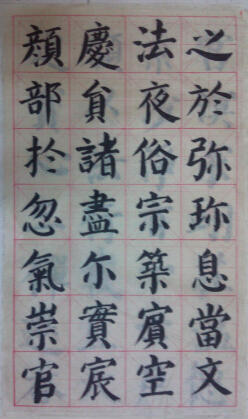 之於弥珎息當文
法夜俗宗築賔空
慶貟諸盡尓實宸
顔部扵忽氣崇官